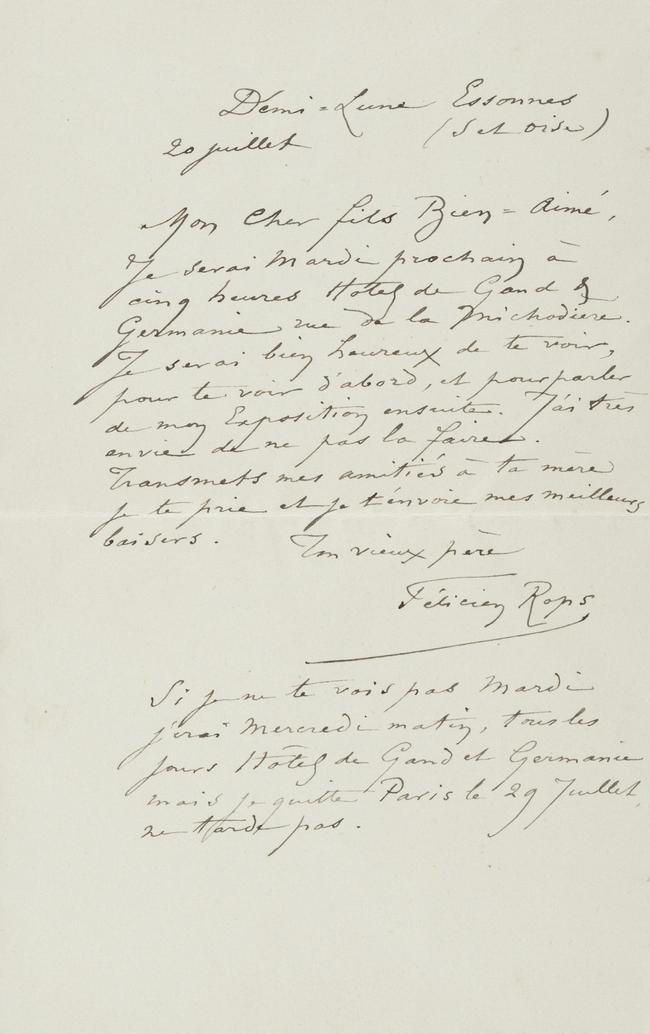 Demi=Lune Essonnes
20 juillet (S et oise)
Mon Cher fils Bien=Aimé,
Je serai Mardi prochain à
cinq heures Hotel de Gand &
Germanie rue de la Michodiere.
Je serai bien heureux de te voir,
pour te voir d'abord, et pour parler
de mon Exposition ensuite. J'ai très
envie de ne pas la faire.
Transmets mes amitiés à ta mère
je te prie et je t'envoie mes meilleurs
baisers. Ton vieux père
Félicien Rops
Si je ne te vois pas Mardi
j'irai Mercredi matin, tous les
jours Hôtel de Gand et Germanie
mais je quitte Paris le 29 Juillet,
ne tarde pas.